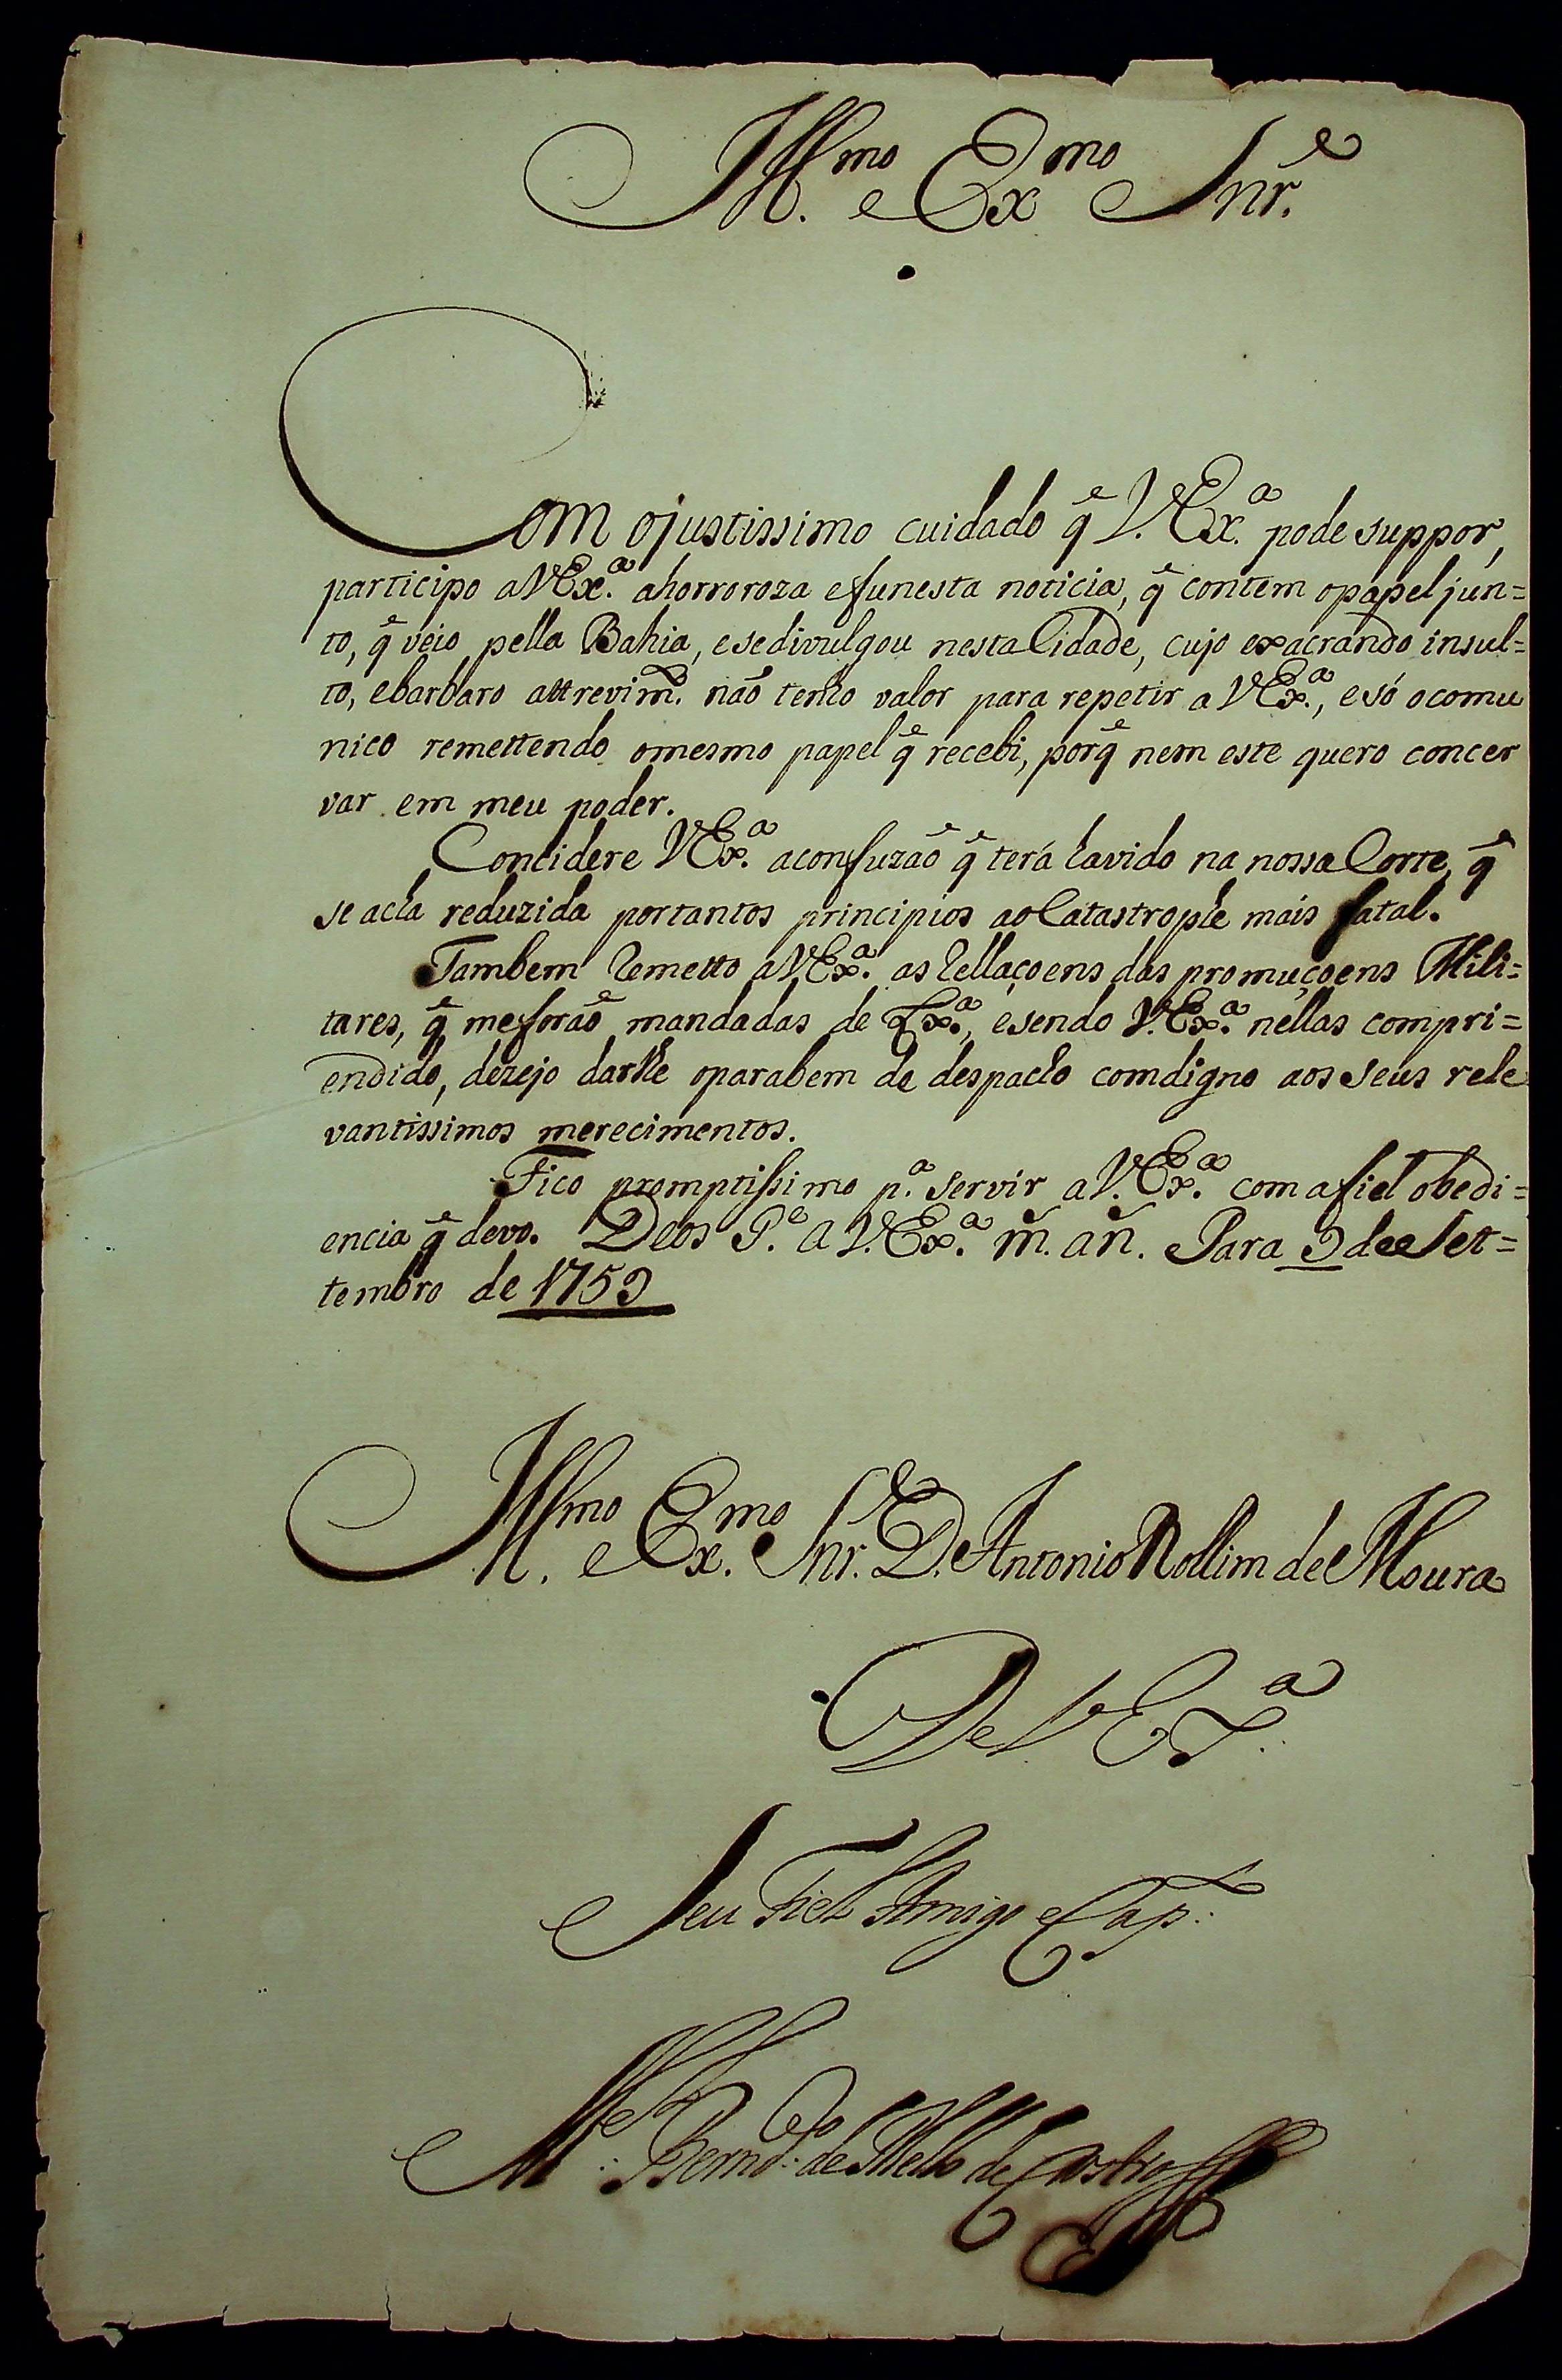 Ill.mo e Ex.mo Snr.e
Com ojustissimo cuidado q̃ V. Ex.a pode suppor,
participo a VEx.a ahorroroza efunesta noticia, q̃ contem opapel jun=
to, q̃ veio pella Bahia, esedivulgou nesta Cidade, cujo exacrando insul=
to, ebarbaro attrevim.to não tenho valor para repetir a VEx.a, esó ocomu
nico remettendo omesmo papel q̃ recebi, porq̃ nem este quero concer
var em meu poder.
Concidere VEx.a aconfuzão q̃ terá havido na nossa Corte, q̃
se acha reduzida portantos principios ao Catastrophe mais fatal.
Tambem Remetto a VEx.a as Rellaçoens das promuçoens Mili=
tares, q̃ meforão mandadas de Lx.a, esendo V.Ex.a nellas compri=
endido, dezejo darlhe oparabem de despacho comdigno aos seus rele
vantissimos merecimentos.
Fico promptissimo p.a servir a V.Ex.a com a fiel obedi=
encia q̃ devo. Deos G.e a V.Ex.a m. an. Para 9 de Set=
tembro de 1759
Ill.mo e Ex.mo Snr. D. Antonio Rollim de Moura
De V. Ex.a
Seu Fiel Amigo e Cap.
M.el Bernd.o de Mello de Castro